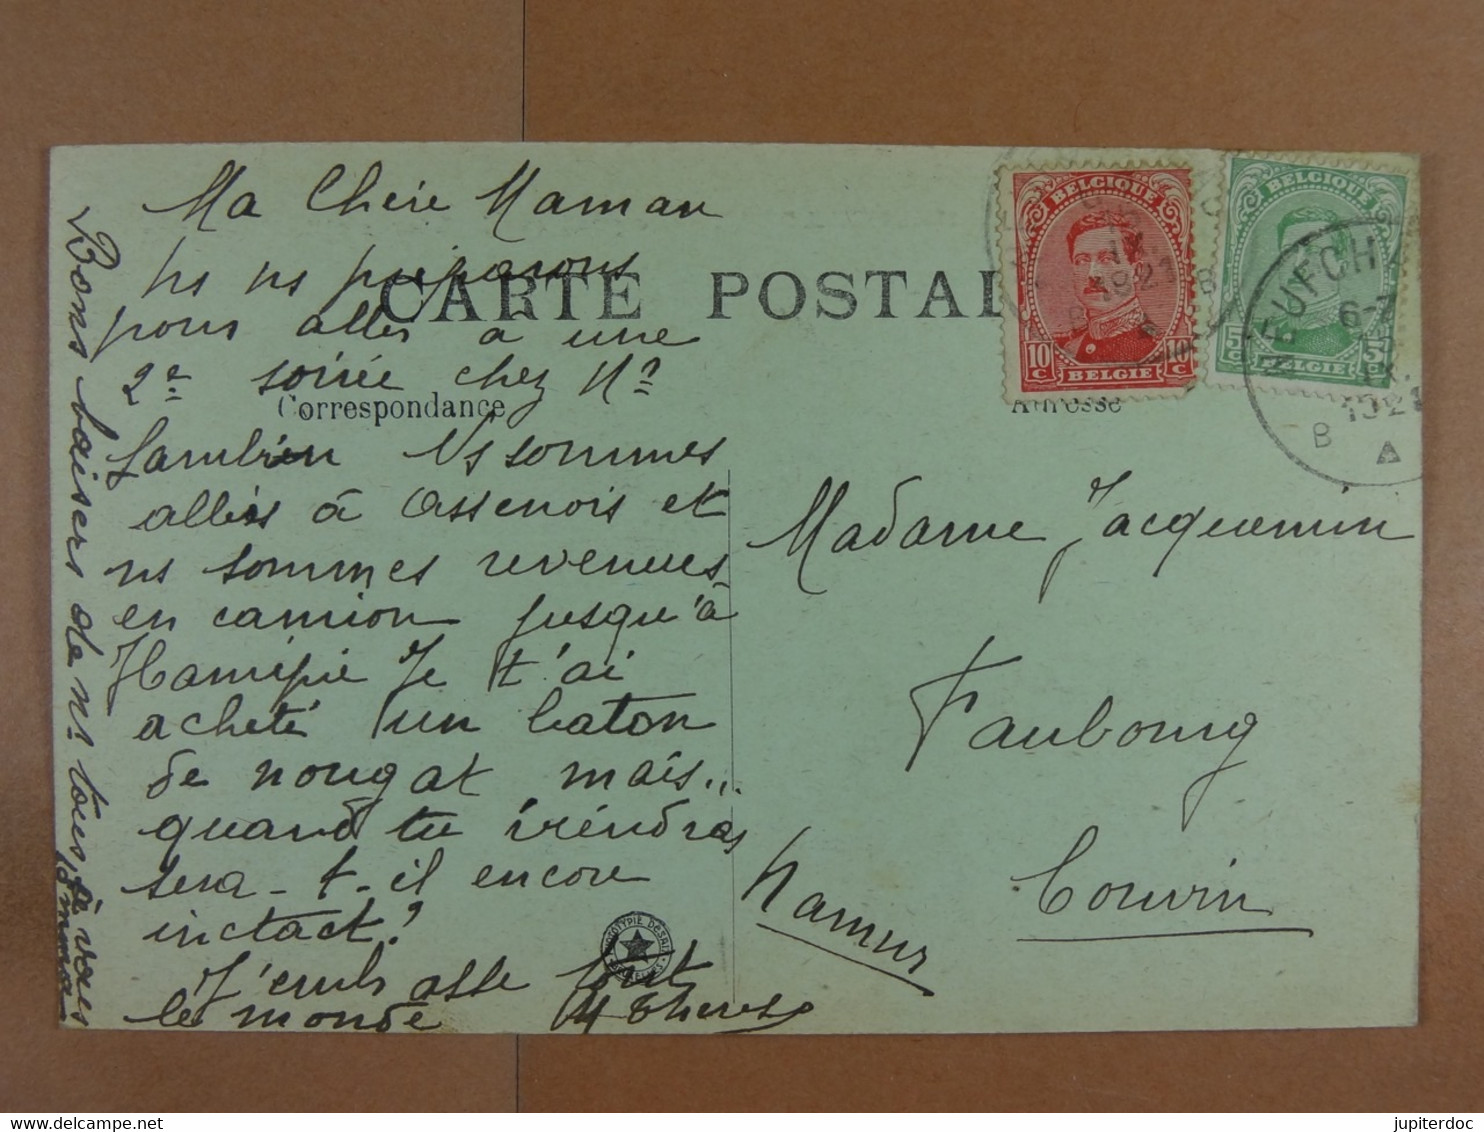 Ma Chère Maman
ns ns préparons
pour aller à une
2e soirée chez Mr
Lambin Ns sommes
allées à Assenois et
ns sommes revenues
en camion jusqu'à
Hamipré Je t'ai
acheté un baton
de nougat mais...
quand tu viendras
sera-t-il encore
inctact?
J'embrasse tout
le monde M Therese
Bons baisers de ns tous à vous
Emma
CARTE POSTAL
Correspondance
Adresse
BELGIQUE
10c 10c
BELGIE
IX
1921
B
BELGIQUE
5c 5c
BELGIE
NEUFCHA
6-7
12
IX
1921
B
Madame Jacquemin
Faubourg
Couvin
Namur
PHOTOTYPIE DESAIX
BRUXELLES
jupiterdoc
www.delcampe.net